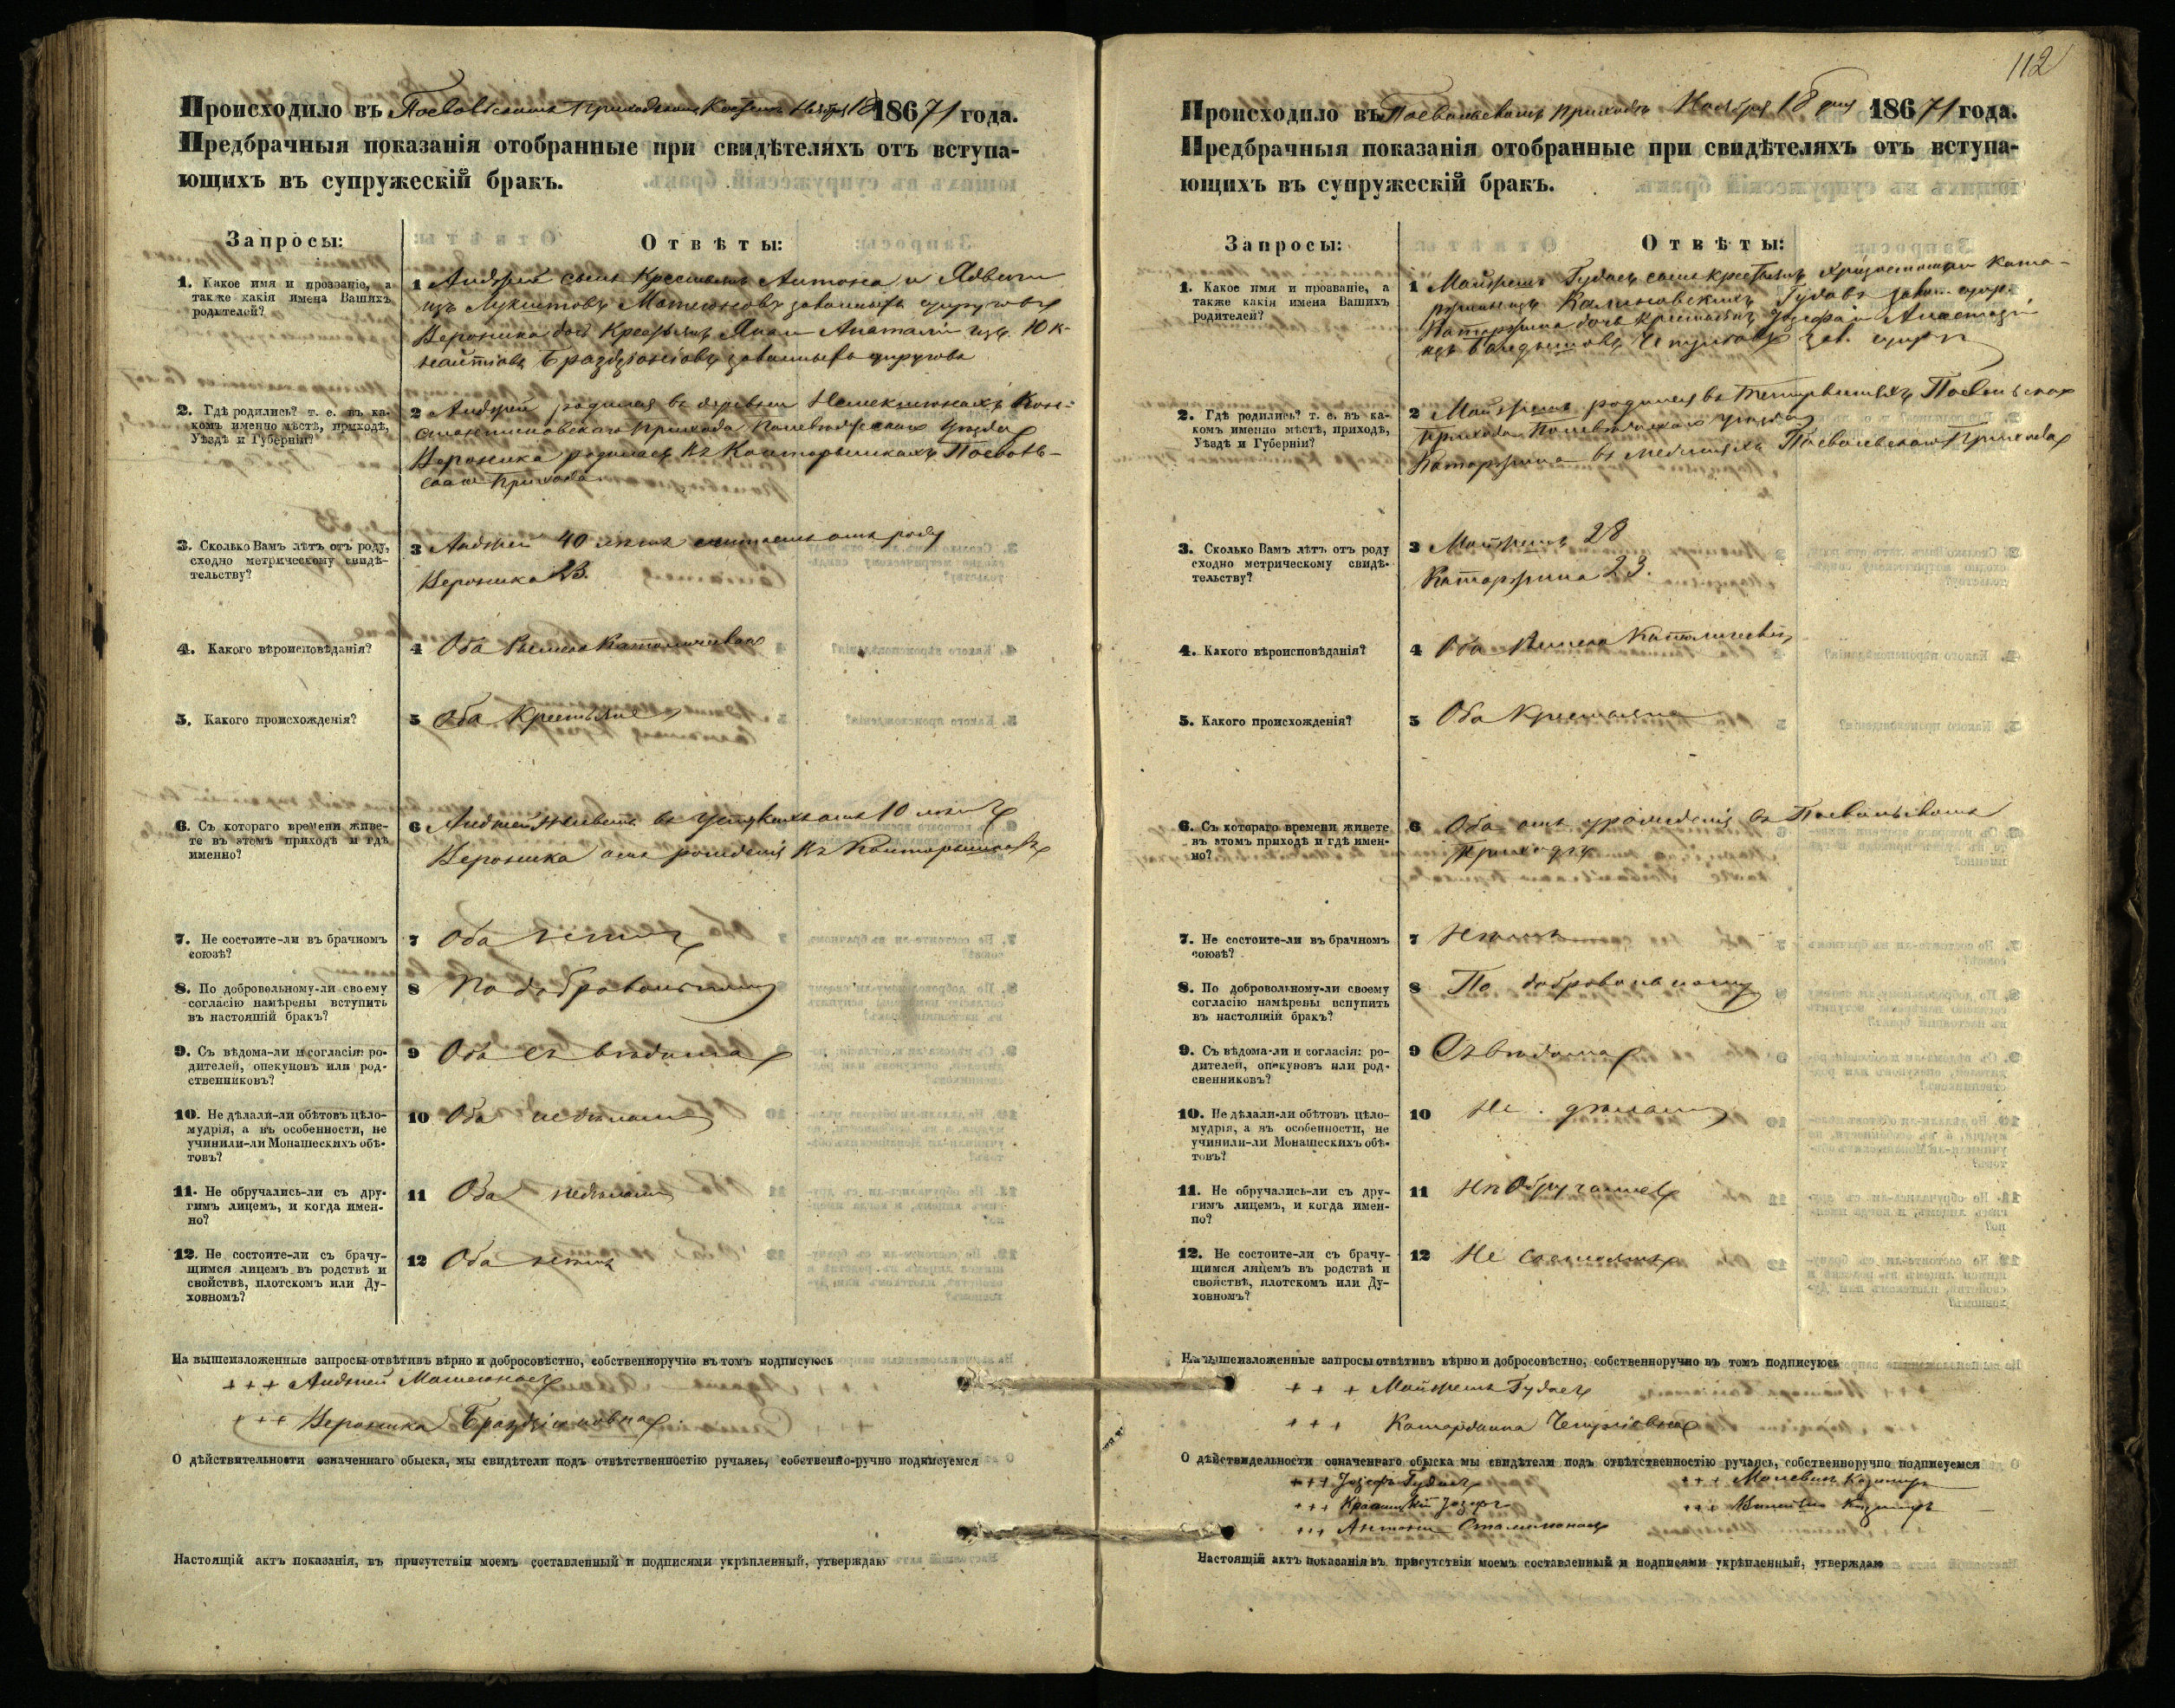 Происходило въ Посвольскомъ приходскомъ Костелѣ Ноября 18 18671 года.
Предбрачныя показанія отобранные при свидѣтеляхъ отъ вступа-
ющихъ въ супружескій бракъ.
Запросы:
Отвѣты:
1. Какое имя и прозваніе, а
также какія имена Вашихъ
родителей?
1 Андрей сынъ Крестьянъ Антона и Ядвиги
изъ Матеюновъ законныхъ супруговъ
Вероника дочь Крестьянъ Яна и изъ Юк-
законныхъ супруговъ
2. Гдѣ родились? т. е. въ ка-
комъ именно мѣстѣ, приходѣ,
Уѣздѣ и Губерніи?
2 Андрей родился въ деревни Кон-
стантиновскаго прихода Поневѣжскаго Уѣзда
Вероника родилась въ Посволь-
скаго прихода
3. Сколько Вамъ лѣтъ отъ роду,
сходно метрическому свидѣ-
тельству?
3 Анджей 40 лѣтъ отъ роду
Вероника 23.
4. Какого вѣроисповѣданія?
4 Оба Римско Католическаго
5. Какого происхожденія?
5 Оба Крестьяне
6. Съ котораго времени живе-
те въ этомъ приходѣ и гдѣ
именно?
6 Анджей живетъ въ отъ 10 лѣтъ
Вероника отъ рожденія въ
7. Не состоите-ли въ брачномъ
союзѣ?
7 Оба нетъ
8. По добровольному-ли своему
согласію намѣрены вступить
въ настоящій бракъ?
8 По добровольному
9. Съ вѣдома-ли и согласія: ро-
дителей, опекуновъ или род-
ственниковъ?
9 Оба съ вѣдома
10. Не дѣлали-ли обѣтовъ цѣло-
мудрія, а въ особенности, не
учинили-ли Монашескихъ обѣ-
товъ?
10 Оба недѣлали
11. Не обручались-ли съ дру-
гимъ лицемъ, и когда имен-
но?
11 Оба недѣлали
12. Не состоите-ли съ брачу-
щимся лицемъ въ родствѣ и
свойствѣ, плотскомъ или Ду-
ховномъ?
12 Оба нетъ
На вышеизложенные запросы отвѣтивъ вѣрно и добросовѣстно, собственноручно въ томъ подписуюсь
+ + + Анджей Матеюнасъ
+ + + Вероника
О дѣйствительности означеннаго обыска, мы свидѣтели подъ отвѣтственностію ручаясь, собственно-ручно подписуемся
Настоящій актъ показанія, въ присутствіи моемъ составленный и подписями укрѣпленный, утверждаю
112
Происходило въ Посвольскомъ приходѣ Ноября 18 дня 18671 года.
Предбрачныя показанія отобранные при свидѣтеляхъ отъ вступа-
ющихъ въ супружескій бракъ.
Запросы:
Отвѣты:
1. Какое имя и прозваніе, а
также какія имена Вашихъ
родителей?
1 Гудасъ сынъ крестьянъ и Ката-
ржины изъ Гудовъ закон. супр.
Катаржина дочь крестьянъ Іозефа и Анастазіи
изъ зак. супр
2. Гдѣ родились? т. е. въ ка-
комъ именно мѣстѣ, приходѣ,
Уѣздѣ и Губерніи?
2 родился въ Посвольскаго
прихода Поневѣжскаго уѣзда
Катаржина въ Посвольскаго Прихода
3. Сколько Вамъ лѣтъ отъ роду
сходно метрическому свидѣ-
тельству?
3 28
Катаржина 23.
4. Какого вѣроисповѣданія?
4 Оба Римско Католическаго
5. Какого происхожденія?
5 Оба Крестьяне
6. Съ котораго времени живете
въ этомъ приходѣ и гдѣ имен-
но?
6 Оба отъ урожденія въ Посвольскомъ
Приходѣ
7. Не состоите-ли въ брачномъ
союзѣ?
7
8. По добровольному-ли своему
согласію намѣрены вспупить
въ настоящій бракъ?
8 По добровольному
9. Съ вѣдома-ли и согласія: ро-
дителей, опекуновъ или род-
свенниковъ?
9 Съ вѣдома
10. Не дѣлали-ли обѣтовъ цѣло-
мудрія, а въ особенности, не
учинили-ли Монашескихъ обѣ-
товъ?
10 Не дѣлали
11. Не обручались-ли съ дру-
гимъ лицемъ, и когда имен-
по?
11 Не обручались
12. Не состоите-ли съ брачу-
щимся лицемъ въ родствѣ и
свойствѣ, плотскомъ или Ду-
ховномъ?
12 Не состоятъ
На вышеизложенные запросы отвѣтивъ вѣрно и добросовѣстно, собственноручно въ томъ подписуюсь
+ + + Гудасъ
+ + +
О дѣйствидельности означеннаго обыска мы свидѣтели подъ отвѣтственностію ручаясь, собственноручно подписуемся
+ + + Іозефъ Гудасъ + + + Казимиръ
+ + + Іозефъ + + + Казимиръ
+ + + Антони
Настоящій актъ показанія въ присутствіи моемъ составленный и подписями укрѣпленный, утверждаю